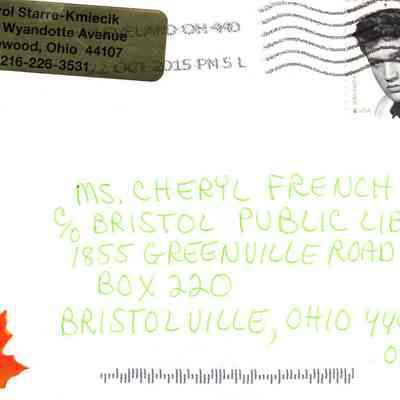 rol Starre-Kmiecik
Wyandotte Avenue
ewood, Ohio 44107
216-226-3531
ELAND OH 440
22 OCT 2015 PM 5 L
MS. CHERYL FRENCH
c/o BRISTOL PUBLIC LIB
1855 GREENVILLE ROAD
BOX 220
BRISTOLVILLE, OHIO 44
O